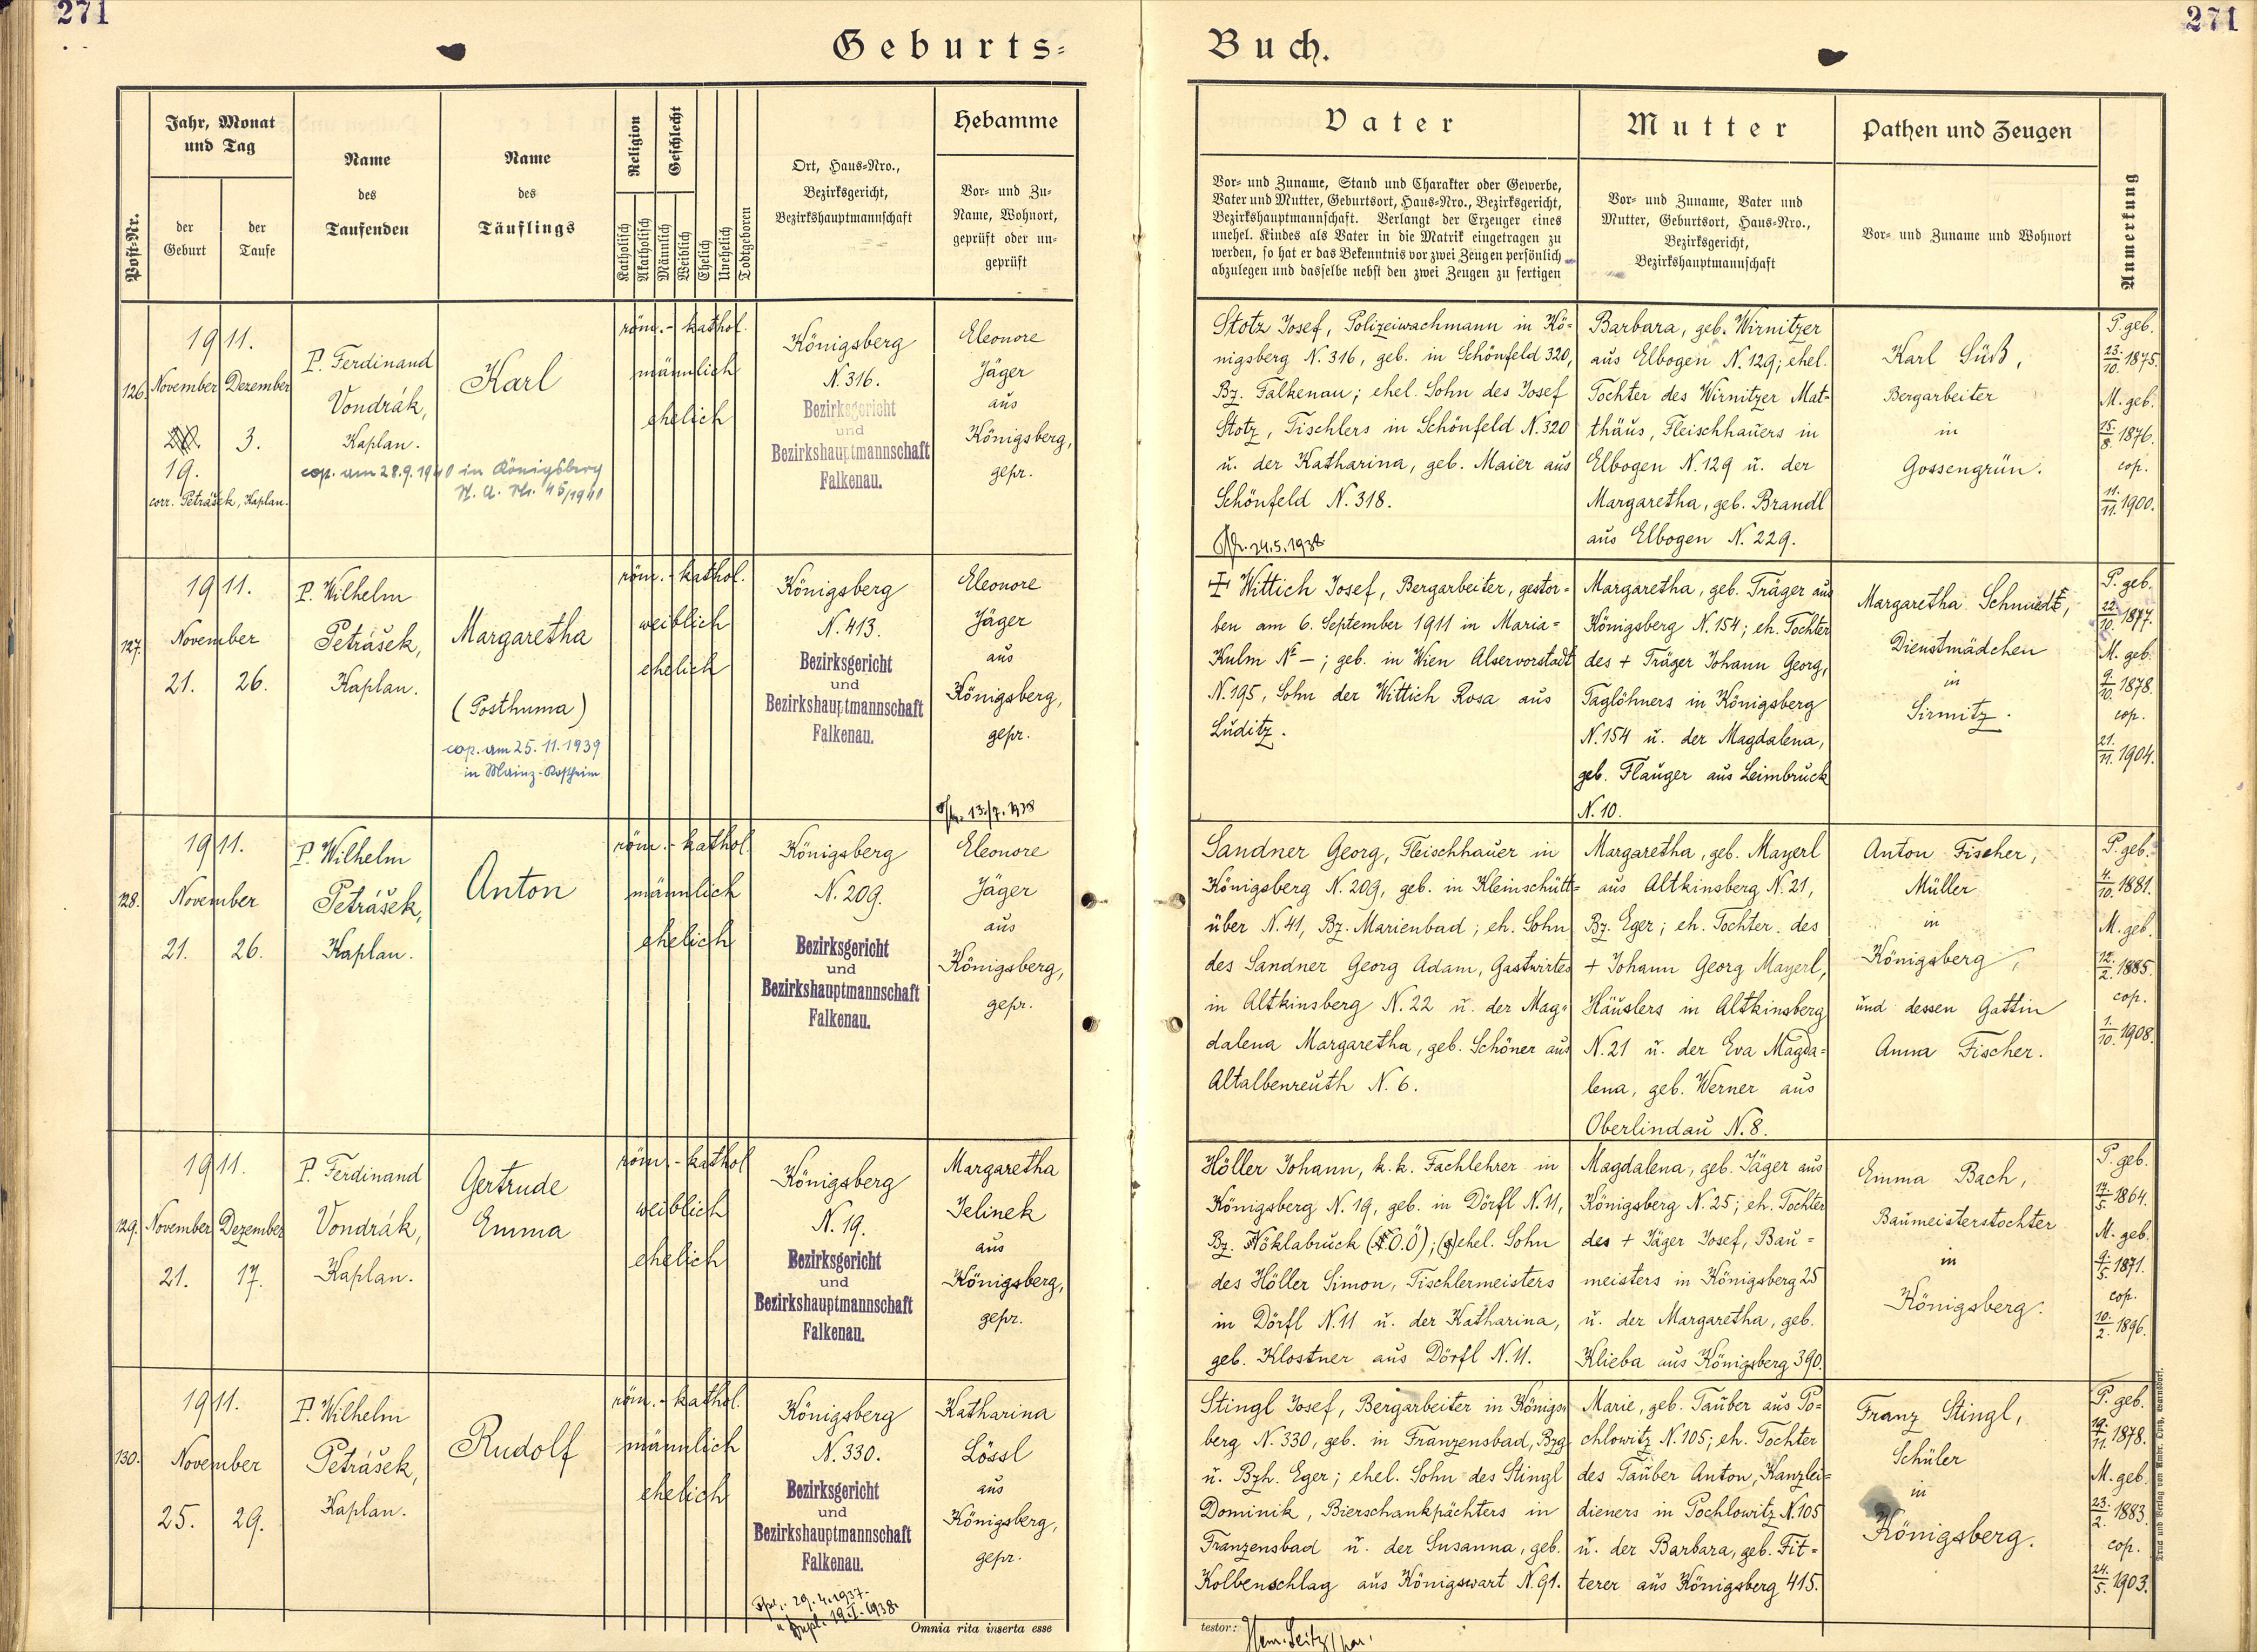 271
271
Geburts-
Buch.
Post-Nr.
Jahr, Monat
und Tag
der
Geburt
der
Taufe
Name
des
Taufenden
Name
des
Täuflings
Religion
Katholisch
Akatholisch
Geschlecht
Männlich
Weiblich
Ehelich
Unehelich
Todtgeboren
Ort, Haus-Nro.,
Bezirksgericht,
Bezirkshauptmannschaft
Hebamme
Vor- und Zu-
Name, Wohnort,
geprüft oder un-
geprüft
Vater
Vor- und Zuname, Stand und Charakter oder Gewerbe,
Vater und Mutter, Geburtsort, Haus-Nro., Bezirksgericht,
Bezirkshauptmannschaft. Verlangt der Erzeuger eines
unehel. Kindes als Vater in die Matrik eingetragen zu
werden, so hat er das Bekenntnis vor zwei Zeugen persönlich
abzulegen und dasselbe nebst den zwei Zeugen zu fertigen
Mutter
Vor- und Zuname, Vater und
Mutter, Geburtsort, Haus-Nro.,
Bezirksgericht,
Bezirkshauptmannschaft
Pathen und Zeugen
Vor- und Zuname und Wohnort
Anmerkung
126.
1911.
November Dezember
3.
19.
corr. Petrášek, Kaplan.
P. Ferdinand
Vondrák,
Kaplan.
Karl
cop. am 28.9.1940 in Königsberg
röm.-kathol.
männlich
ehelich
Königsberg
N. 316.
Bezirksgericht
und
Bezirkshauptmannschaft
Falkenau.
Eleonore
Jäger
aus
Königsberg,
gepr.
Stotz Josef, Polizeiwachmann in Kö-
nigsberg N. 316, geb. in Schönfeld 320,
Bz. Falkenau; ehel. Sohn des Josef
Stotz, Tischlers in Schönfeld N. 320
u. der Katharina, geb. Maier aus
Schönfeld N. 318.
24.5.1938
Barbara, geb. Wirnitzer
aus Elbogen N. 129; ehel.
Tochter des Wirnitzer Mat-
thäus, Fleischhauers in
Elbogen N. 129 u. der
Margaretha, geb. Brandl
aus Elbogen N. 229.
Karl Süß,
Bergarbeiter
in
Gossengrün.
P. geb.
23./10. 1875.
M. geb.
15./8. 1876.
cop.
11./11. 1900.
127.
1911.
November
21. 26.
P. Wilhelm
Petrášek,
Kaplan.
Margaretha
(Posthuma)
cop. am 25.11.1939
in Mainz-Kostheim
röm.-kathol.
weiblich
ehelich
Königsberg
N. 413.
Bezirksgericht
und
Bezirkshauptmannschaft
Falkenau.
Eleonore
Jäger
aus
Königsberg,
gepr.
13./7.1938
Wittich Josef, Bergarbeiter, gestor-
ben am 6. September 1911 in Maria-
Kulm No –; geb. in Wien Alservorstadt
N. 195, Sohn der Wittich Rosa aus
Luditz.
Margaretha, geb. Träger aus
Königsberg N. 154; eh. Tochter
des + Träger Johann Georg,
Taglöhners in Königsberg
N. 154 u. der Magdalena,
geb. Flauger aus Leimbruck
N. 10.
Margaretha Schmiedt,
Dienstmädchen
in
Sirmitz.
P. geb.
22./10. 1877.
M. geb.
9./10. 1878.
cop.
21./11. 1904.
128.
1911.
November
21. 26.
P. Wilhelm
Petrášek,
Kaplan.
Anton
röm.-kathol.
männlich
ehelich
Königsberg
N. 209.
Bezirksgericht
und
Bezirkshauptmannschaft
Falkenau.
Eleonore
Jäger
aus
Königsberg,
gepr.
Sandner Georg, Fleischhauer in
Königsberg N. 209, geb. in Kleinschütt-
über N. 41, Bz. Marienbad; eh. Sohn
des Sandner Georg Adam, Gastwirtes
in Altkinsberg N. 22 u. der Mag-
dalena Margaretha, geb. Schöner aus
Altalbenreuth N. 6.
Margaretha, geb. Mayerl
aus Altkinsberg N. 21,
Bz. Eger; eh. Tochter des
+ Johann Georg Mayerl,
Häuslers in Altkinsberg
N. 21 u. der Eva Magda-
lena, geb. Werner aus
Oberlindau N. 8.
Anton Fischer,
Müller
in
Königsberg,
und dessen Gattin
Anna Fischer.
P. geb.
4./10. 1881.
M. geb.
12./2. 1885.
cop.
1./10. 1908.
129.
1911.
November Dezember
21. 17.
P. Ferdinand
Vondrák,
Kaplan.
Gertrude
Emma
röm.-kathol
weiblich
ehelich
Königsberg
N. 19.
Bezirksgericht
und
Bezirkshauptmannschaft
Falkenau.
Margaretha
Jelinek
aus
Königsberg,
gepr.
Höller Johann, k. k. Fachlehrer in
Königsberg N. 19, geb. in Dörfl N. 11,
Bz. Vöklabruck (O.Ö); ehel. Sohn
des Höller Simon, Tischlermeisters
in Dörfl N. 11 u. der Katharina,
geb. Klostner aus Dörfl N. 11.
Magdalena, geb. Jäger aus
Königsberg N. 25; eh. Tochter
des + Jäger Josef, Bau-
meisters in Königsberg 25
u. der Margaretha, geb.
Klieba aus Königsberg 390.
Emma Bach,
Baumeisterstochter
in
Königsberg.
P. geb.
17./5. 1864.
M. geb.
9./5. 1871.
cop.
10./2. 1896.
130.
1911.
November
25. 29.
P. Wilhelm
Petrášek,
Kaplan.
Rudolf
röm.-kathol.
männlich
ehelich
Königsberg
N. 330.
Bezirksgericht
und
Bezirkshauptmannschaft
Falkenau.
29.4.1937.
Dupl. 19.I.1938.
Katharina
Lössl
aus
Königsberg,
gepr.
Stingl Josef, Bergarbeiter in Königs-
berg N. 330, geb. in Franzensbad, Bzg
u. Bzh. Eger; ehel. Sohn des Stingl
Dominik, Bierschankpächters in
Franzensbad u. der Susanna, geb.
Kolbenschlag aus Königswart N. 91.
Marie, geb. Tauber aus Po-
chlowitz N. 105; eh. Tochter
des Tauber Anton, Kanzlei-
dieners in Pochlowitz N. 105
u. der Barbara, geb. Fit-
terer aus Königsberg 415.
Franz Stingl,
Schüler
in
Königsberg.
P. geb.
19./11. 1878.
M. geb.
23./2. 1883.
cop.
24./5. 1903.
Omnia rita inserta esse
testor: